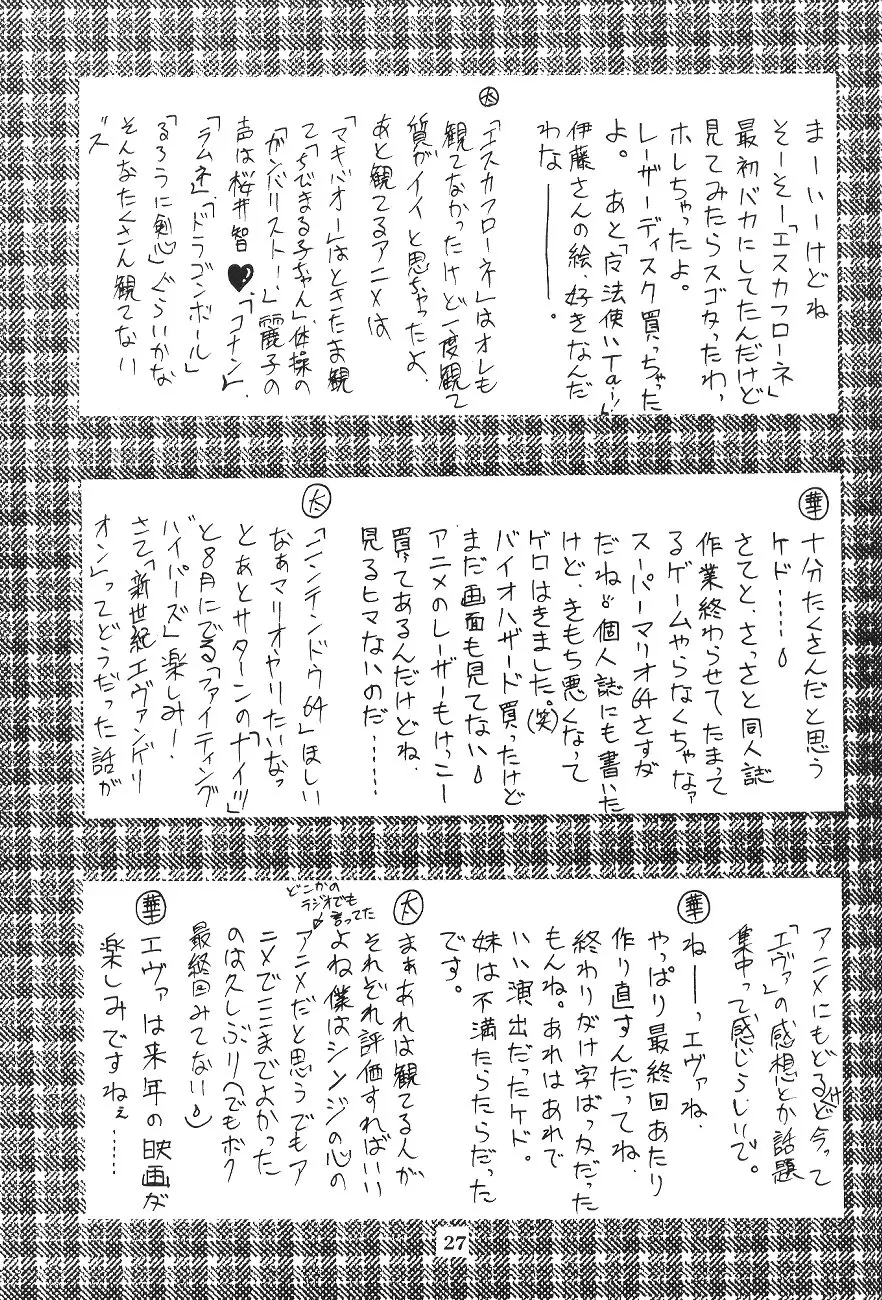 まーいーけどね
そーそー「エスカフローネ」
最初バカにしてたんだけど
見てみたらスゴかったわ，
ホレちゃったよ。
レーザーディスク買っちゃった
よ。あと「魔法使いTai!」
伊藤さんの絵、好きなんだ
わな―――。
太
「エスカフローネ」はオレも
観てなかったけど一度観て
質がイイと思っちゃったよ．
あと観てるアニメは
「マキバオー」はときたま観
て「ちびまる子ちゃん」、体操の
「ガンバリスト！」麗子の
声は桜井智♥、「コナン」、
「ラムネ」、「ドラゴンボール」
「るろうに剣心」ぐらいかな
そんなたくさん観てない
ス"
華
十分たくさんだと思う
ケド……
さてと、さっさと同人誌
作業終わらせてたまって
るゲームやらなくちゃなァ
スーパーマリオ64さすが
だね 個人誌にも書いた
けど、きもち悪くなって
ゲロはきました。(笑)
バイオハザード買ったけど
まだ画面も見てない
アニメのレーザーもけっこー
買ってあるんだけどね、
見るヒマないのだ……
太
「ニンテンドウ64」ほしい
なぁマリオやりたいなっ
とあとサターンの「ナイツ」
と8月にでる「ファイティング
バイパーズ」楽しみ！
さて「新世紀エヴァンゲリ
オン」ってどうだった話が
アニメにもどるけど今って
「エヴァ」の感想とか話題
集中って感じらしいで。
華
ねーーっエヴァね、
やっぱり最終回あたり
作り直すんだってね．
終わりがけ字ばっかだった
もんね。あれはあれで
いい演出だったケド。
妹は不満たらたらだった
です。
太
まぁあれは観てる人が
それぞれ評価すればいい
よね僕はシンジの心の
どこかの
ラジオでも
言ってた
アニメだと思うでもア
ニメでここまでよかった
のは久しぶりへでもボク
最終回みてない)
華
エヴァは来年の映画が
楽しみですねぇ……
27